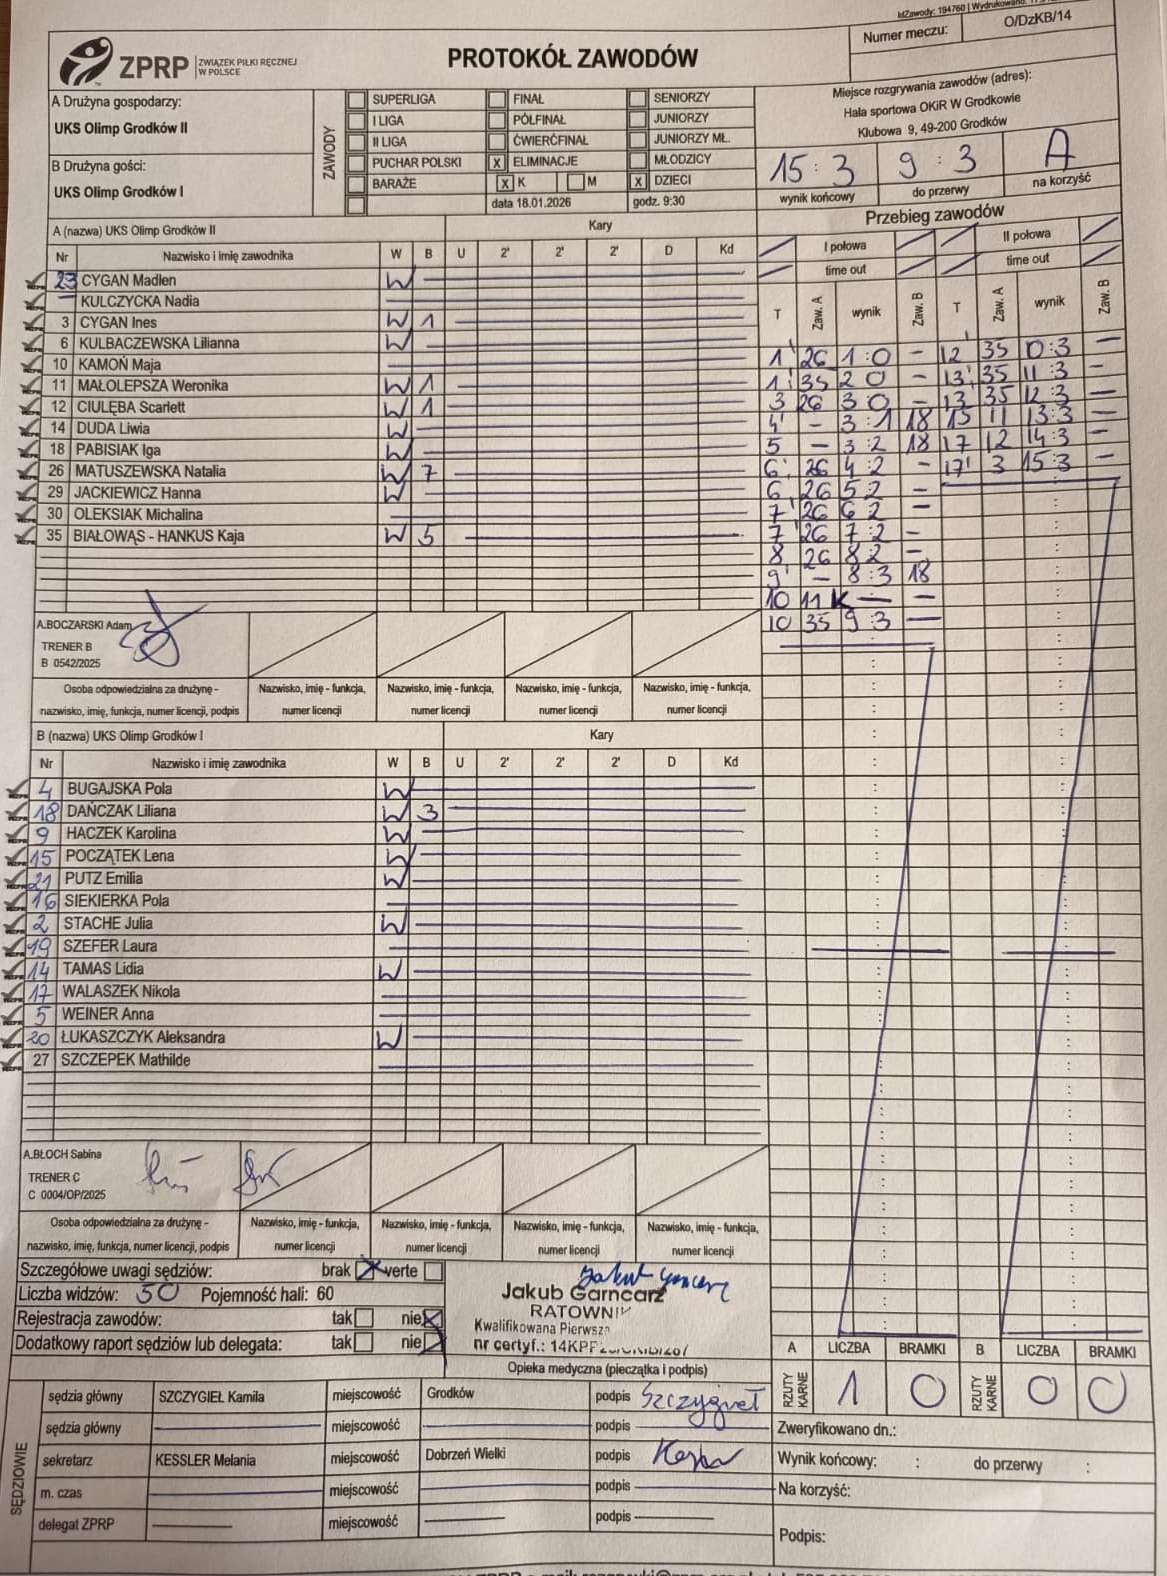 IdZawody: 194760 | Wydrukowano:
Numer meczu: O/DzKB/14
ZPRP ZWIĄZEK PIŁKI RĘCZNEJ
W POLSCE
PROTOKÓŁ ZAWODÓW
A Drużyna gospodarzy:
UKS Olimp Grodków II
B Drużyna gości:
UKS Olimp Grodków I
ZAWODY
SUPERLIGA FINAŁ SENIORZY
I LIGA PÓŁFINAŁ JUNIORZY
II LIGA ĆWIERĆFINAŁ JUNIORZY MŁ.
PUCHAR POLSKI X ELIMINACJE MŁODZICY
BARAŻE X K M X DZIECI
data 18.01.2026 godz. 9:30
Miejsce rozgrywania zawodów (adres):
Hala sportowa OKiR W Grodkowie
Klubowa 9, 49-200 Grodków
15:3 9:3 A
wynik końcowy do przerwy na korzyść
A (nazwa) UKS Olimp Grodków II Kary
Nr Nazwisko i imię zawodnika W B U 2' 2' 2' D Kd
23 CYGAN Madlen W
KULCZYCKA Nadia
3 CYGAN Ines W 1
6 KULBACZEWSKA Lilianna W
10 KAMOŃ Maja
11 MAŁOLEPSZA Weronika W 1
12 CIULĘBA Scarlett W 1
14 DUDA Liwia W
18 PABISIAK Iga W
26 MATUSZEWSKA Natalia W 7
29 JACKIEWICZ Hanna W
30 OLEKSIAK Michalina
35 BIAŁOWĄS - HANKUS Kaja W 5
A.BOCZARSKI Adam
TRENER B
B 0542/2025
Osoba odpowiedzialna za drużynę - Nazwisko, imię - funkcja, Nazwisko, imię - funkcja, Nazwisko, imię - funkcja, Nazwisko, imię - funkcja,
nazwisko, imię, funkcja, numer licencji, podpis numer licencji numer licencji numer licencji numer licencji
B (nazwa) UKS Olimp Grodków I Kary
Nr Nazwisko i imię zawodnika W B U 2' 2' 2' D Kd
4 BUGAJSKA Pola W
18 DAŃCZAK Liliana W 3
9 HACZEK Karolina W
15 POCZĄTEK Lena W
21 PUTZ Emilia W
16 SIEKIERKA Pola
2 STACHE Julia W
19 SZEFER Laura
14 TAMAS Lidia W
17 WALASZEK Nikola
5 WEINER Anna
20 ŁUKASZCZYK Aleksandra W
27 SZCZEPEK Mathilde
A.BŁOCH Sabina
TRENER C
C 0004/OP/2025
Osoba odpowiedzialna za drużynę - Nazwisko, imię - funkcja, Nazwisko, imię - funkcja, Nazwisko, imię - funkcja, Nazwisko, imię - funkcja,
nazwisko, imię, funkcja, numer licencji, podpis numer licencji numer licencji numer licencji numer licencji
Przebieg zawodów
I połowa II połowa
time out time out
T Zaw. A wynik Zaw. B T Zaw. A wynik Zaw. B
1' 26 1:0 - 12' 35 10:3 -
1' 35 2 0 - 13' 35 11:3 -
3 26 3 0 - 13 35 12:3 -
4' - 3:1 18 15 11 13:3 -
5 - 3:2 18 17 12 14:3 -
6' 26 4:2 - 17' 3 15:3 -
6 26 5 2 -
7' 26 6 2 -
7' 26 7:2 -
8 26 8 2 -
9' - 8:3 18
10 11 K - -
10 35 9:3 -
Szczegółowe uwagi sędziów: brak X verte
Liczba widzów: 50 Pojemność hali: 60
Rejestracja zawodów: tak nie X
Dodatkowy raport sędziów lub delegata: tak nie X
Jakub Garncarz
Jakub Garncarz
RATOWNIK
Kwalifikowana Pierwsza
nr certyf.: 14KPP
Opieka medyczna (pieczątka i podpis)
A LICZBA BRAMKI B LICZBA BRAMKI
RZUTY KARNE 1 0 RZUTY KARNE 0 0
SĘDZIOWIE
sędzia główny SZCZYGIEŁ Kamila miejscowość Grodków podpis Szczygieł
sędzia główny miejscowość podpis
sekretarz KESSLER Melania miejscowość Dobrzeń Wielki podpis
m. czas miejscowość podpis
delegat ZPRP miejscowość podpis
Zweryfikowano dn.:
Wynik końcowy: : do przerwy :
Na korzyść:
Podpis: